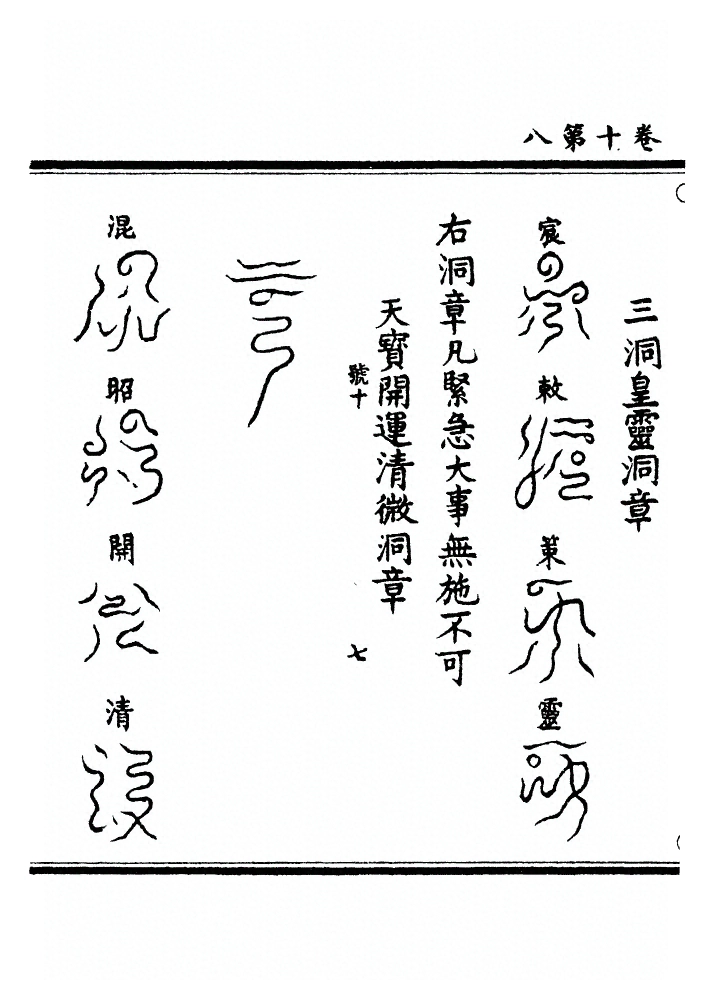 卷十第八
三洞皇靈洞章
宸 敕 策 靈
右洞章凡緊急大事無施不可
天寶開運清微洞章
號十 七
混 昭 開 清